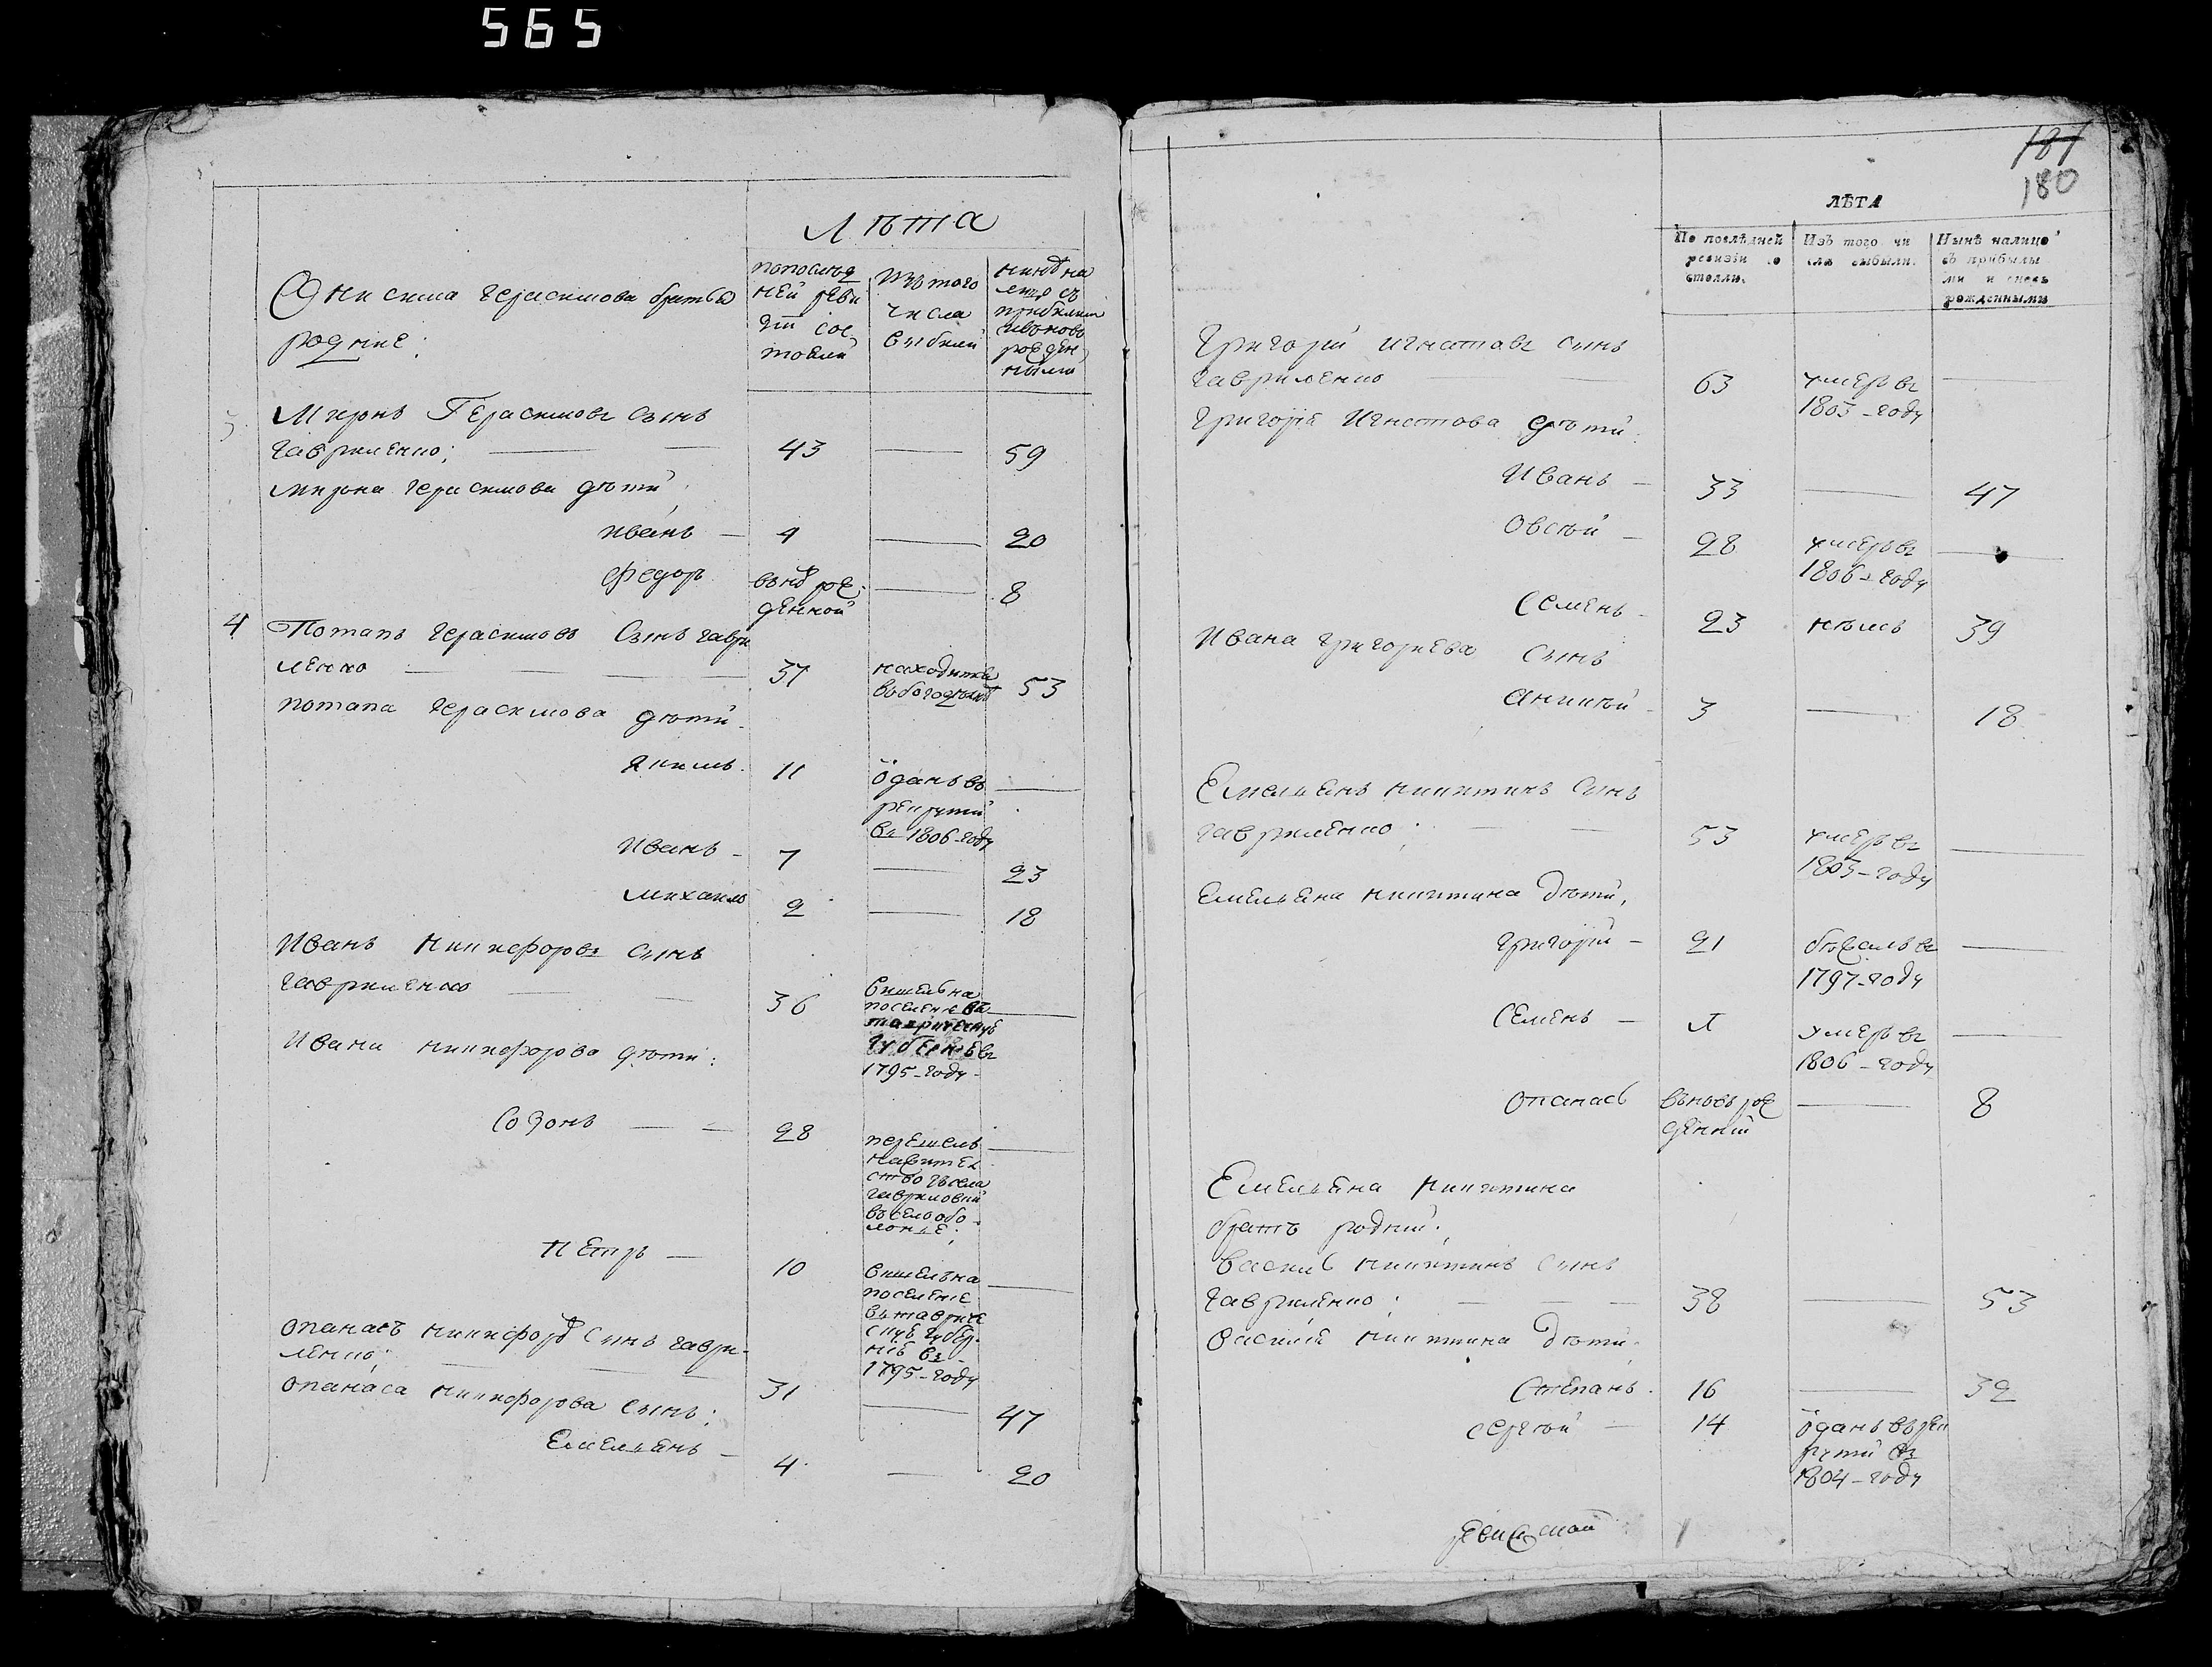 565
Лѣта
Онисима Герасимова братья
родные:
попослѣд
ней реви
зїи сос
тояли
Изъ того
числа
выбыли
нинѣ на
лицо съ
прибилими
ївновь
рожден
ными
3
Миронъ Герасимовъ сынъ
Гавриленко; 43 — 59
Мирона Герасимова дѣти
Иванъ — 4 — 20
Федоръ вънѣ рож
денной — 8
4 Потапъ Герасимовъ Сынъ гаври
ленко — 37 находится
вбогодѣлнѣ 53
Потапа Герасимова дѣти.
Якимъ. 11 ѿданъ въ —
рекруты
въ 1806-году
Иванъ — 7 — 23
Михаилъ 2 — 18
Иванъ Никифоровъ сынъ
Гавриленко — 36 вишелъ на
поселение въ —
таврическую
губернѣ въ
1795-году
Ивана Никифорова дѣти:
Созонъ — 28 перешелъ —
нажител
ство изсела
гавриловки
въ село обо
лонье;
Петръ — 10 вишелъ на —
поселение
въ тавриче
скую губер
нію въ
1795-году
Опанасъ Никифоровъ Сынъ гаври-
ленко; 31 — 47
Опанаса Никифорова Сынъ:
Емельянъ — 4 — 20
181
180
ЛѢТА
По послѣдней
ревизіи со
стояли.
Изъ того чи
сла выбыли.
Нынѣ налицо
съ прибылы
ми и вновь
рожденными
Григорїй Игнатовъ сынъ
Гавриленко — 63 умеръ въ —
1803-году
Григорїя Игнатова дѣти:
Иванъ — 33 — 47
Овсѣй — 28 умеръ въ —
1806-году
Семенъ — 23 нѣмъ 39
Ивана Григориева сынъ
Аникѣй — 3 — 18
Емельянъ Никитинъ Сынъ
Гавриленко; — 53 умеръ въ —
1803-году
Емельяна Никитина Дѣти,
Григорїй — 21 бѣжалъ въ —
1797-году
Семенъ — умеръ въ —
1806-году
Опанасъ вьновь рож
денный — 8
Емельяна Никитина
братъ родный;
Василь Никитинъ Сынъ
Гавриленко; — 38 — 53
Василия Никитина Дѣти:
Степанъ. 16 — 32
Сергѣй — 14 ѿданъ въ рек
руты въ
1804-году